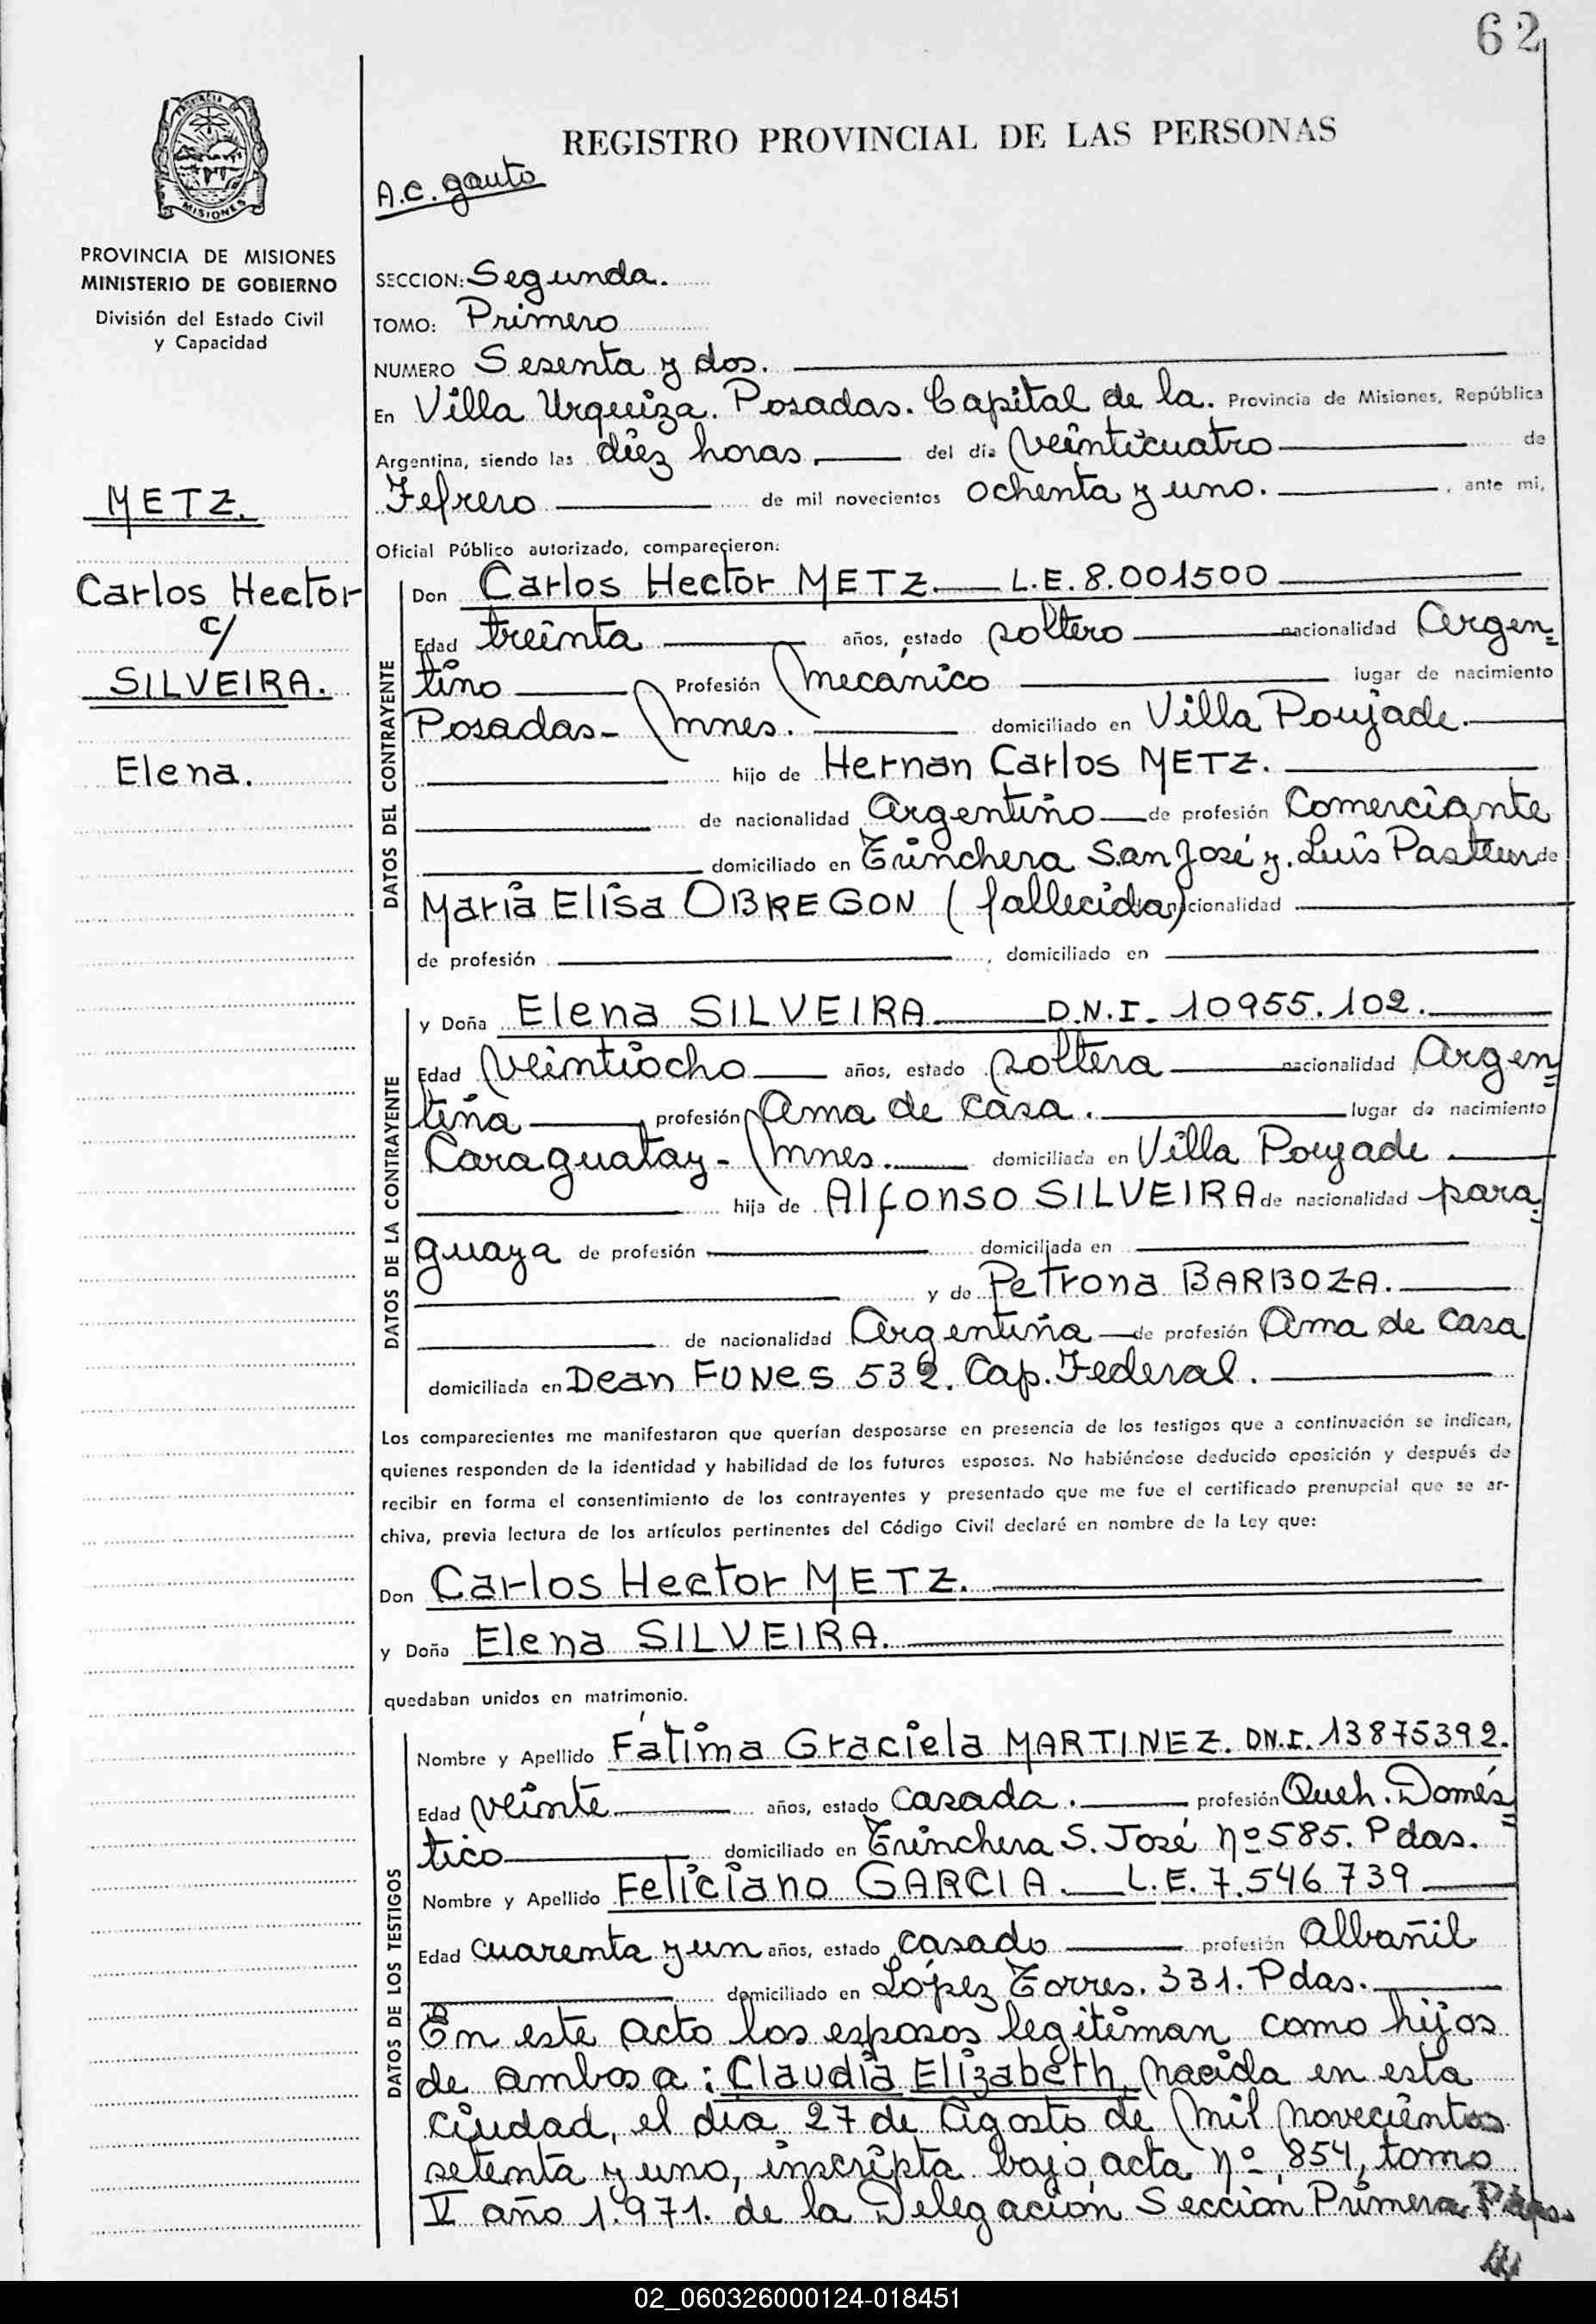 62
REGISTRO PROVINCIAL DE LAS PERSONAS
A.C. gauto
PROVINCIA DE MISIONES
MINISTERIO DE GOBIERNO
División del Estado Civil
y Capacidad
METZ.
Carlos Hector
c/
SILVEIRA.
Elena.
SECCION: Segunda.
TOMO: Primero
NUMERO Sesenta y dos.
En Villa Urquiza. Posadas. Capital de la. Provincia de Misiones, República
Argentina, siendo las diez horas, del día veinticuatro de
Febrero de mil novecientos ochenta y uno. , ante mi,
Oficial Público autorizado, comparecieron:
DATOS DEL CONTRAYENTE
Don Carlos Hector METZ. L.E. 8.001500
Edad treinta años, estado soltero nacionalidad Argen=
tino Profesión mecánico lugar de nacimiento
Posadas- Mnes. domiciliado en Villa Poujade.
hijo de Hernan Carlos METZ.
de nacionalidad Argentino de profesión Comerciante
domiciliado en Trinchera San José y. Luis Pasteur de
María Elisa OBREGON (fallecida) nacionalidad
de profesión , domiciliado en
DATOS DE LA CONTRAYENTE
y Doña Elena SILVEIRA. D.N.I. 10955.102.
Edad veintiocho años, estado soltera nacionalidad Argen=
tina profesión Ama de casa. lugar de nacimiento
Caraguatay- Mnes. domiciliada en Villa Poujade
hija de Alfonso SILVEIRA de nacionalidad para=
guaya de profesión domiciliada en
y de Petrona BARBOZA.
de nacionalidad Argentina de profesión Ama de casa
domiciliada en Dean FUNES 532. Cap. Federal.
Los comparecientes me manifestaron que querían desposarse en presencia de los testigos que a continuación se indican,
quienes responden de la identidad y habilidad de los futuros esposos. No habiéndose deducido oposición y después de
recibir en forma el consentimiento de los contrayentes y presentado que me fue el certificado prenupcial que se ar-
chiva, previa lectura de los artículos pertinentes del Código Civil declaré en nombre de la Ley que:
Don Carlos Hector METZ.
y Doña Elena SILVEIRA.
quedaban unidos en matrimonio.
DATOS DE LOS TESTIGOS
Nombre y Apellido Fátima Graciela MARTINEZ. DN.I. 13875392.
Edad veinte años, estado casada. profesión Queh. Domés=
tico domiciliado en Trinchera S. José nº 585. Pdas.
Nombre y Apellido Feliciano GARCIA. L.E. 7.546739
Edad cuarenta y un años, estado casado profesión Albañil
domiciliado en López Torres. 331. Pdas.
En este acto los esposos legitiman como hijos
de ambos a: Claudia Elizabeth, nacida en esta
ciudad, el día 27 de Agosto de mil novecientos
setenta y uno, inscripta bajo acta nº 854, tomo
V año 1.971. de la Delegación Sección Primera Pdas.
02_060326000124-018451